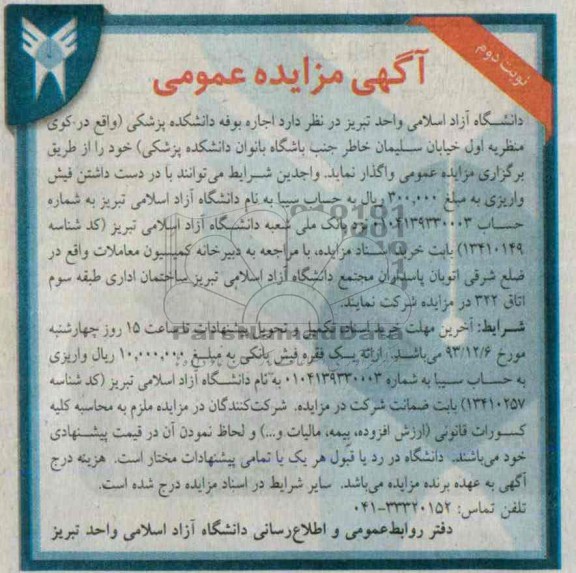 نوبت دوم
آگهی مزایده عمومی
دانشگاه آزاد اسلامی واحد تبریز در نظر دارد اجاره بوفه دانشکده پزشکی (واقع در کوی
منظریه اول خیابان سلیمان خاطر جنب باشگاه بانوان دانشکده پزشکی) خود را از طریق
برگزاری مزایده عمومی واگذار نماید. واجدین شرایط می‌توانند با در دست داشتن فیش
واریزی به مبلغ ۳۰۰,۰۰۰ ریال به حساب سیبا به نام دانشگاه آزاد اسلامی تبریز به شماره
حساب ۰۱۰۴۱۳۹۳۳۰۰۰۳ نزد بانک ملی شعبه دانشگاه آزاد اسلامی تبریز (کد شناسه
۱۳۴۱۰۱۴۹) بابت خرید اسناد مزایده، با مراجعه به دبیرخانه کمیسیون معاملات واقع در
ضلع شرقی اتوبان پاسداران مجتمع دانشگاه آزاد اسلامی تبریز ساختمان اداری طبقه سوم
اتاق ۳۲۲ در مزایده شرکت نمایند.
شرایط: آخرین مهلت خرید اسناد تکمیل و تحویل پیشنهادات تا ساعت ۱۵ روز چهارشنبه
مورخ ۹۳/۱۲/۶ می‌باشد. ارائه یک فقره فیش بانکی به مبلغ ۱۰,۰۰۰,۰۰۰ ریال واریزی
به حساب سیبا به شماره ۰۱۰۴۱۳۹۳۳۰۰۰۳ به نام دانشگاه آزاد اسلامی تبریز (کد شناسه
۱۳۴۱۰۲۵۷) بابت ضمانت شرکت در مزایده. شرکت‌کنندگان در مزایده ملزم به محاسبه کلیه
کسورات قانونی (ارزش افزوده، بیمه، مالیات و...) و لحاظ نمودن آن در قیمت پیشنهادی
خود می‌باشند. دانشگاه در رد یا قبول هر یک یا تمامی پیشنهادات مختار است. هزینه درج
آگهی به عهده برنده مزایده می‌باشد. سایر شرایط در اسناد مزایده درج شده است.
تلفن تماس: ۳۳۳۲۰۱۵۲-۰۴۱
دفتر روابط‌عمومی و اطلاع‌رسانی دانشگاه آزاد اسلامی واحد تبریز
ParsNamadData